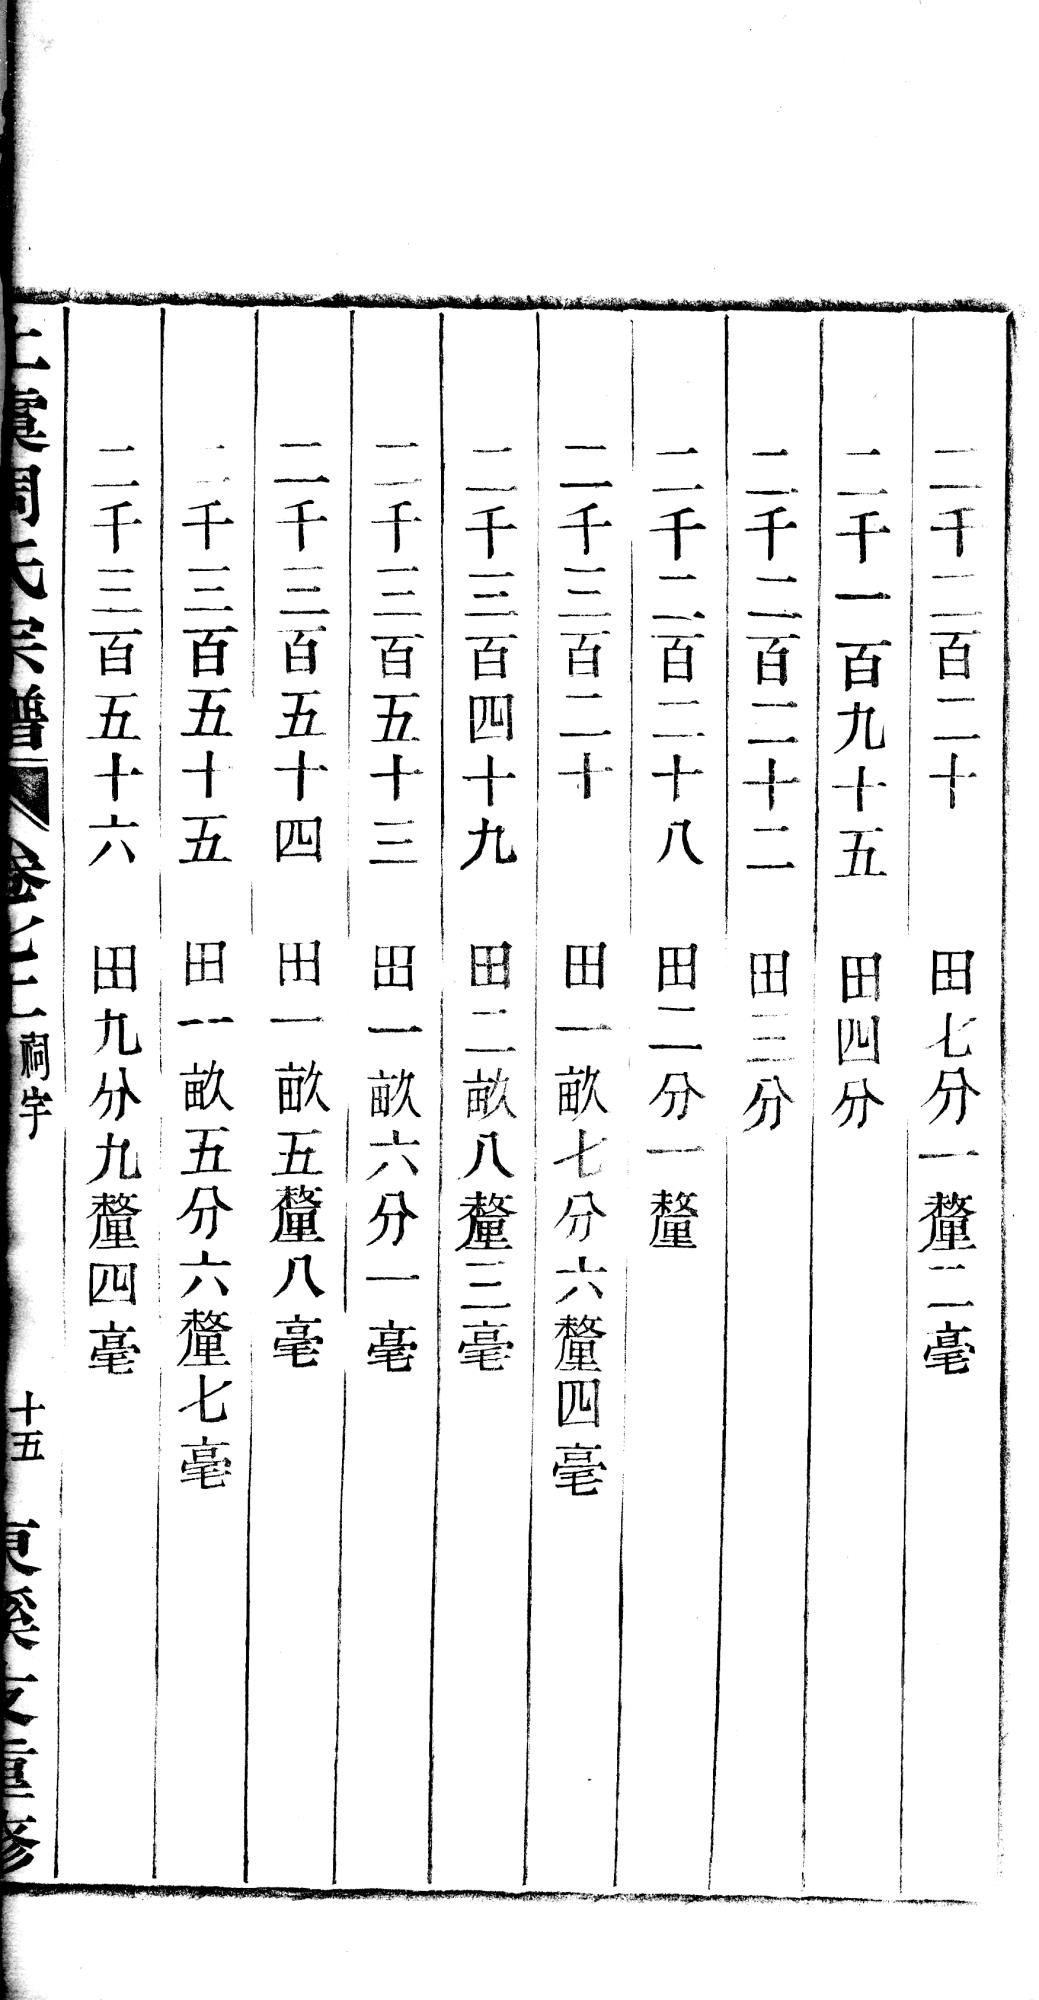 二千二百二十　田七分一釐二毫
二千一百九十五　田四分
二千二百二十二　田三分
二千二百二十八　田二分一釐
二千三百二十　田一畝七分六釐四毫
二千三百四十九　田二畝八釐三毫
二千三百五十三　田一畝六分一毫
二千三百五十四　田一畝五釐八毫
二千三百五十五　田一畝五分六釐七毫
二千三百五十六　田九分九釐四毫
上虞周氏宗譜　卷十二　祠宇　十五　東溪支重修